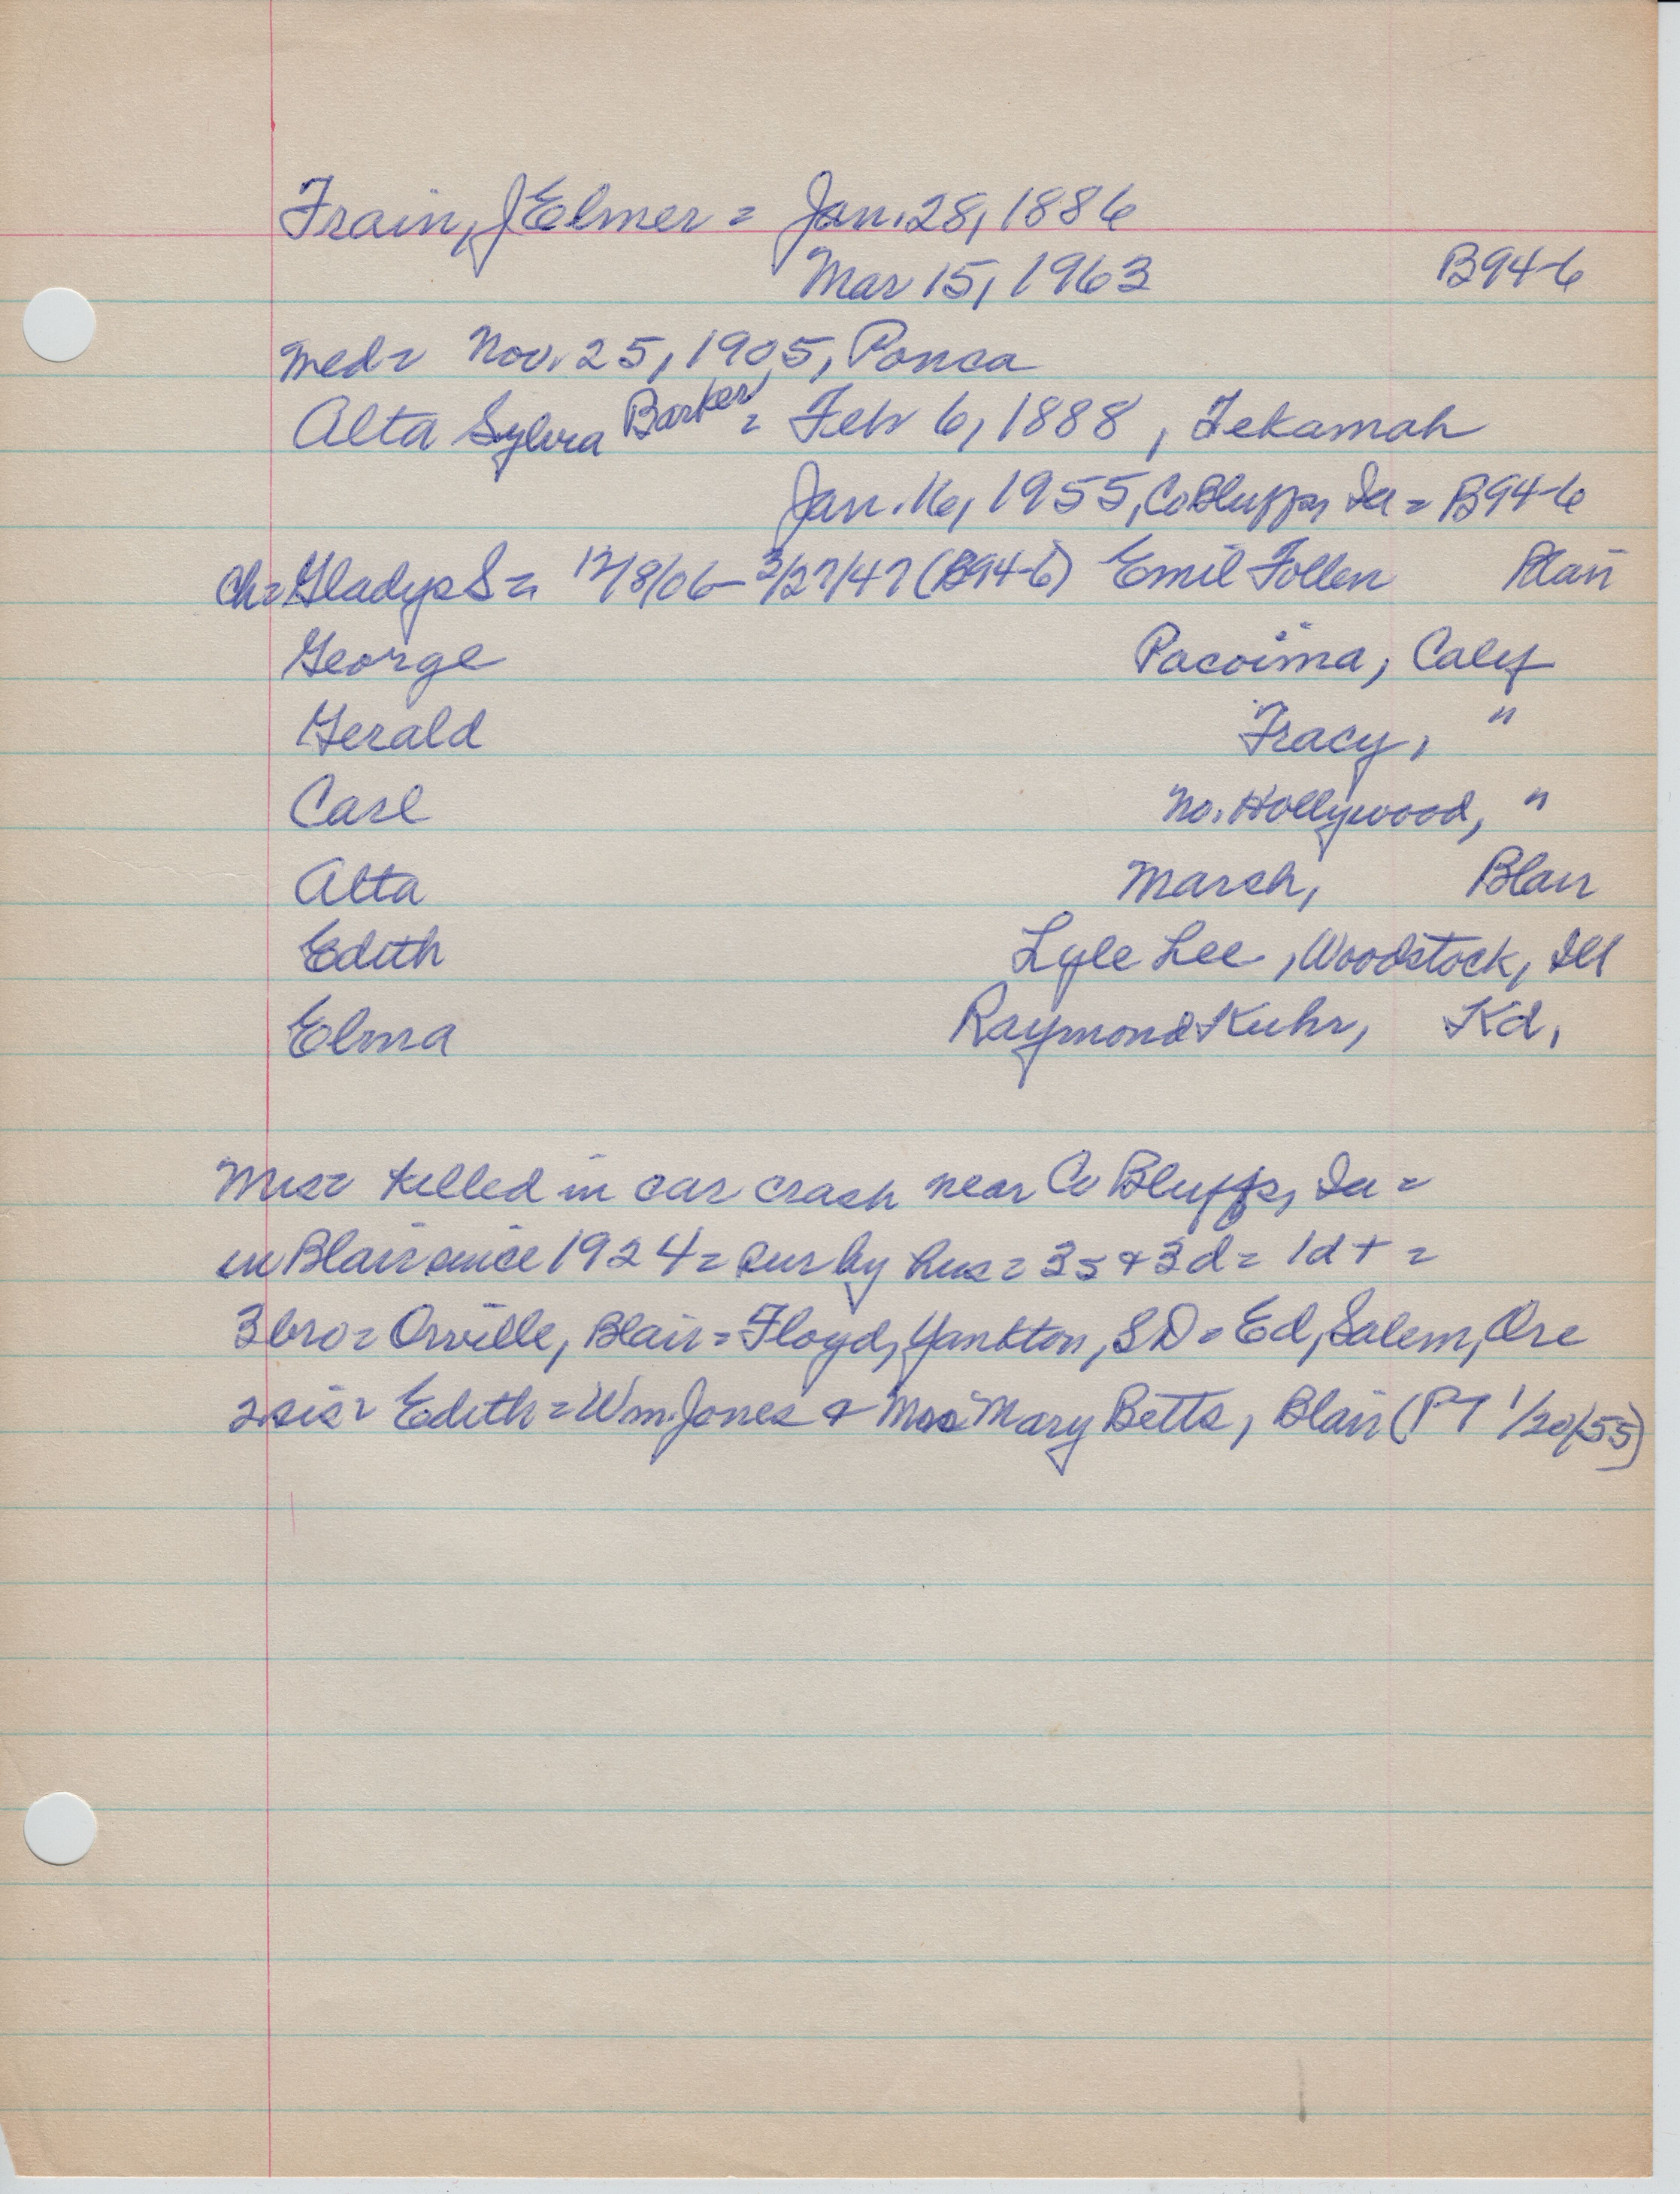 Train, J Elmer = Jan. 28, 1886
Mar 15, 1963 B94-6
med = Nov. 25, 1905, Ponca
Alta Sylvia Barker = Feb 6, 1888, Tekamah
Jan. 16, 1955, Co Bluffs, Ia = B94-6
Ch = Gladys S = 12/8/06 - 3/27/47 (B94-6) Emil Follen Blair
George Pacoima, Calif
Gerald Tracy, "
Carl No. Hollywood, "
Alta Marsh, Blair
Edith Lyle Lee, Woodstock, Ill
Elma Raymond Kuhr, Kd,
Mrs = killed in car crash near Co Bluffs, Ia =
in Blair since 1924 = sur by hus = 3s & 3d = 1d + =
3 bro = Orville, Blair = Floyd, Yankton, SD = Ed, Salem, Ore
2 sis = Edith = Wm. Jones & Mrs Mary Betts, Blair (PT 1/20/55)